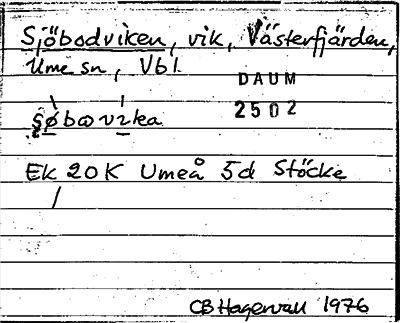 Sjöbodviken, vik, Västerfjärden,
Ume sn, Vbl.
DAUM
2502
Ek 20K Umeå 5d Stöcke
CB Hagervall 1976